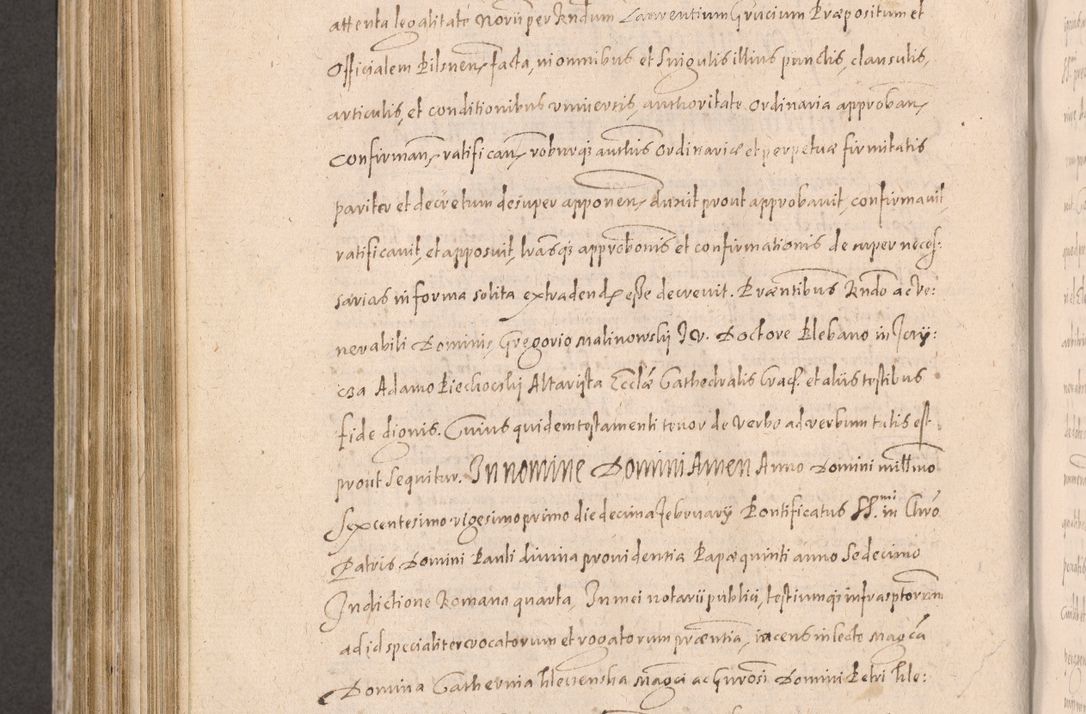 attenta legalitate Norū per Rndum Laurentium Gracium Præpositum et
Officialem Pilsnen, facta, in omnibus et Singulis illius punctis, clausulis,
articulis, et conditionibus universis, authoritate ordinaria approban,
confirman, ratifican, roburq authtis Ordinariæ et perpetuæ firmitatis
pariter et decretum desuper apponen, duxit prout approbavit, confirmavit,
ratificavit, et apposuit, lrasq approbonis et confirmationis de super neces:
sarias in forma solita extradend, esse decrevit. Præntibus Rndo ac Ve:
nerabili Dominis, Gregorio Malinowskj I.V. Doctore Plebano in
Adamo Piechockj Altarista Ecclæ Cathedralis Crac, et aliis testibus
fide dignis. Cuius quidem testamenti tenor de Verbo ad verbum talis est
prout sequitur. In nomine Domini Amen Anno Domini millmo
Sexcentesimo vigesimo primo die decima February Pontificatus SS.mi in Chro
Patris Domini Pauli divina providentia Papæ quinti anno Sedecimo
Indictione Romana quarta, In mei notarii publici, testiumq infrasptorum
ad id specialiter evocatorum et rogatorum præntia, iacens in lecto Magca
Domina Catherina Magci ac Gnrosi Domini Petri